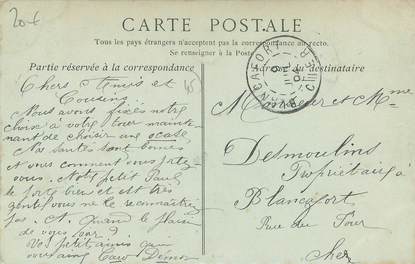 20€
CARTE POSTALE
Tous les pays étrangers n'acceptent pas la correspondance au recto.
Se renseigner à la Poste
Partie réservée à la correspondance
Adresse du destinataire
Chers Amis et
Cousins
Nous avons fixés notre
choix à votre tour mainte
nant de choisir une
Nos santés sont bonnes
et vous comment vous
vous. Notre petit Paul
se porte bien et est très
gentil vous ne le reconnaîtrez
pas. A Quand le plaisir
de vous voir ?
Vos petits amis
Monsieur et Mme
Desmoulins
Propriétaire à
Blancafort
Rue du Four
Cher
BLANCAFORT
CHER